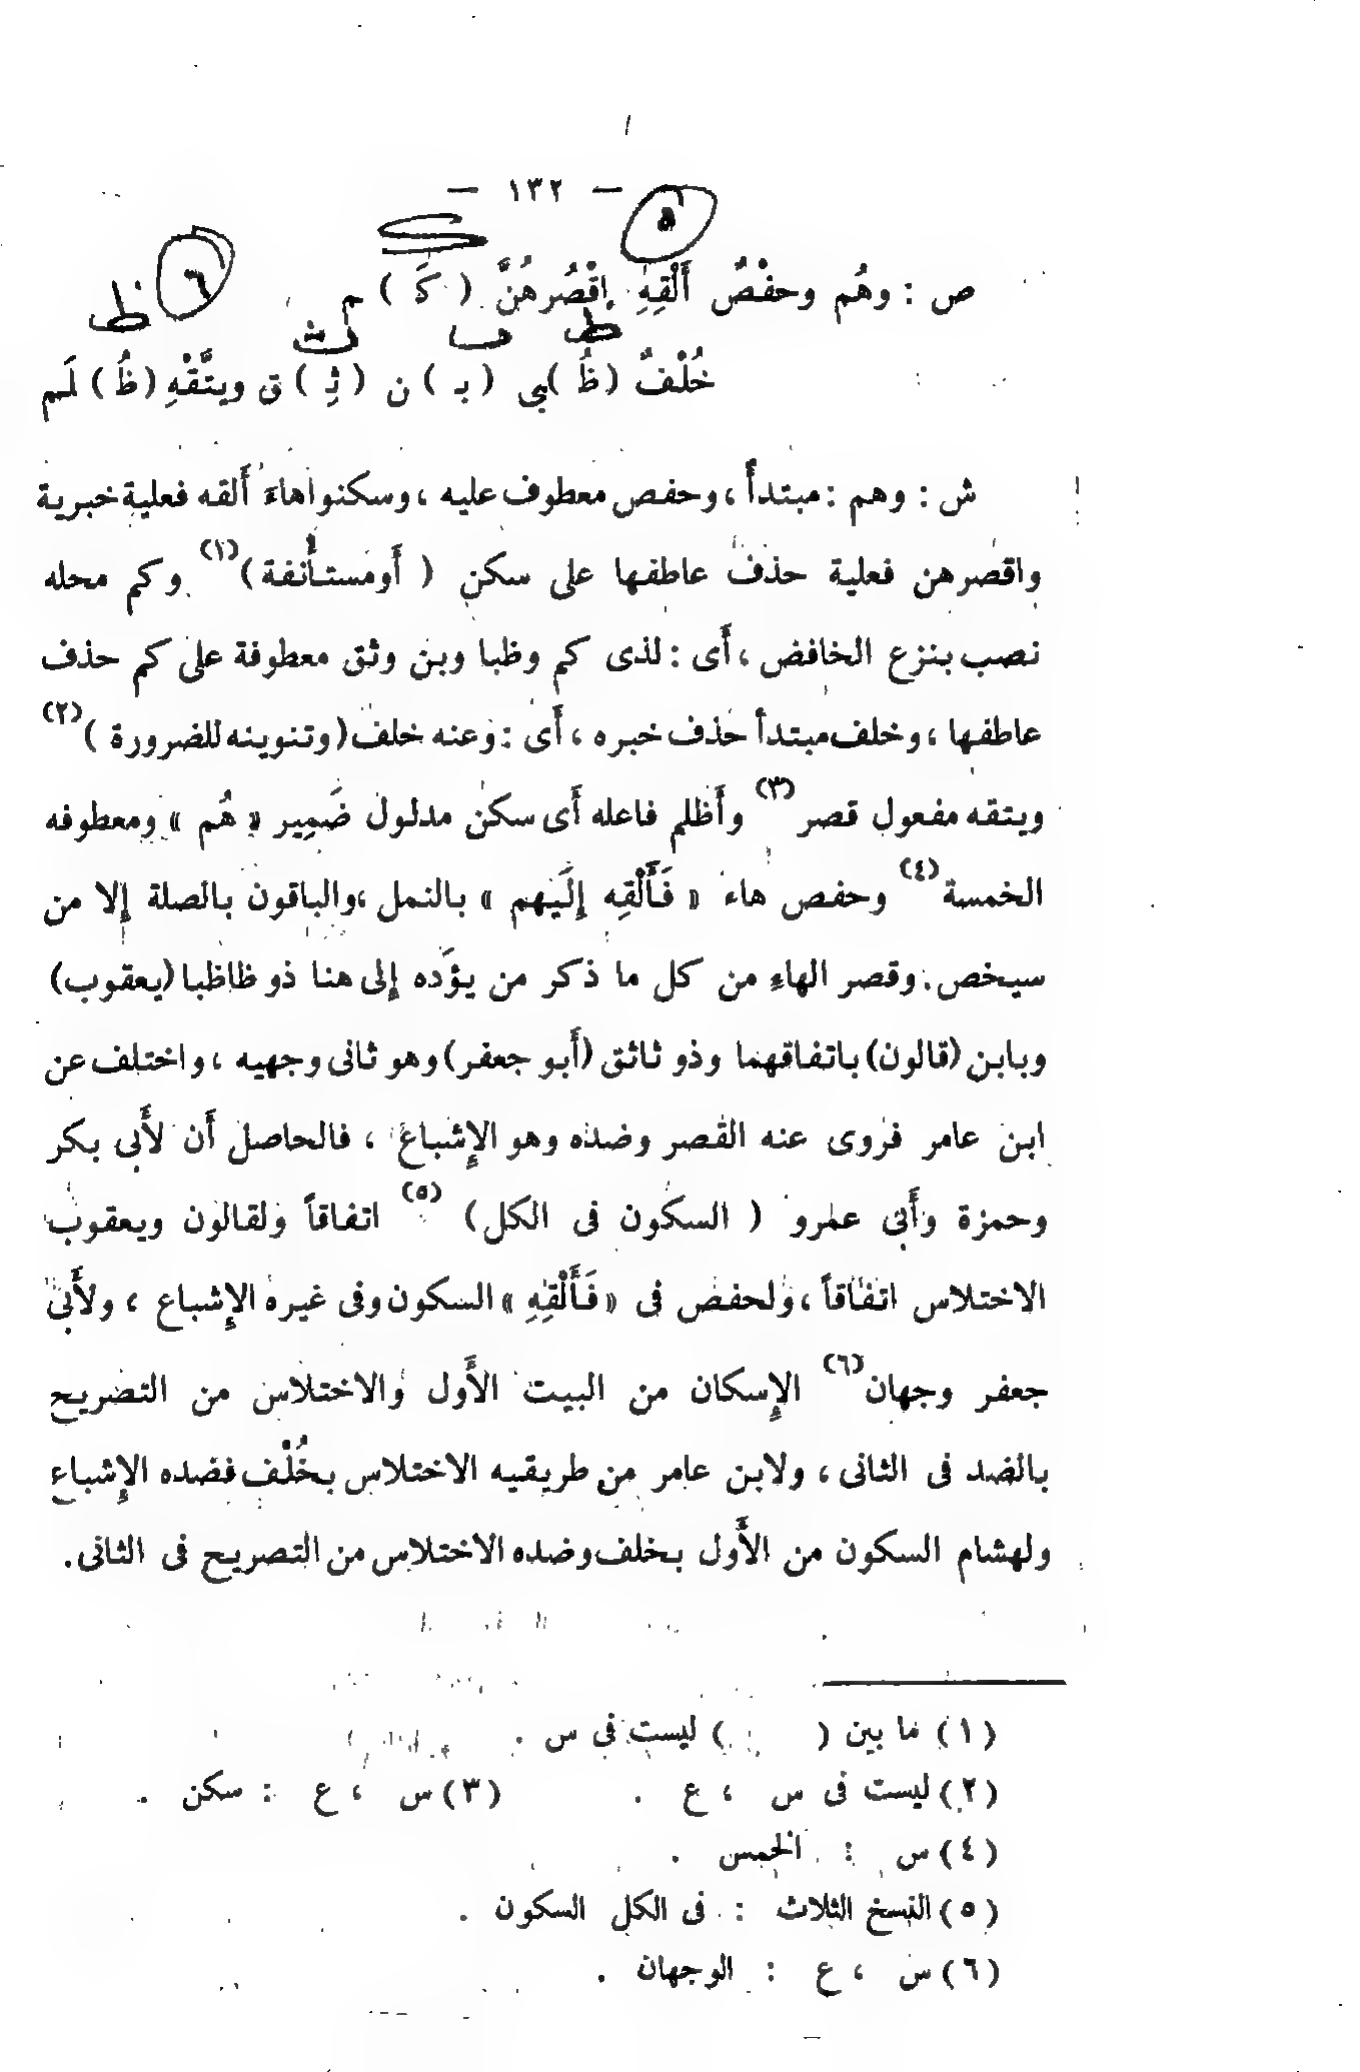 — ١٣٢ —
٥
٦
ص : وهُم وحفْصٌ أَلْقِهِ إقْصُرهُنَّ ( كَ ) م
ظ
خُلْفٌ ( ظُ )بى ( بـ ) ن ( ثِـ ) ق ويتَّقْهِ ( ظُ ) لَـم
ش : وهم : مبتدأ ، وحفص معطوف عليه ، وسكنوا هاءَ ألقه فعلية خبرية
واقصرهن فعلية حذف عاطفها على سكن ( أومستأنفة )(١) وكم محله
نصب بنزع الخافض ، أى : لذى كم وظبا وبن وثق معطوفة على كم حذف
عاطفها ، وخلف مبتدأ حذف خبره ، أى : وعنه خلف ( وتنوينه للضرورة )(٢)
ويتقه مفعول قصر(٣) وأظلم فاعله أى سكن مدلول ضَمِير « هُم » ومعطوفه
الخمسة(٤) وحفص هاء « فَأَلْقِه إلَيهم » بالنمل ، والباقون بالصلة إلا من
سيخص . وقصر الهاءِ من كل ما ذكر من يؤَده إلى هنا ذو ظاظبا (يعقوب)
وبابن (قالون) باتفاقهما وذو ثاثق (أبو جعفر) وهو ثانى وجهيه ، واختلف عن
ابن عامر فروى عنه القصر وضده وهو الإشباع ، فالحاصل أن لأَبى بكر
وحمزة وأبى عمرو ( السكون فى الكل )(٥) اتفاقاً ولقالون ويعقوب
الاختلاس اتفاقاً ، ولحفص فى « فَأَلْقِهِ » السكون وفى غيره الإشباع ، ولأَبى
جعفر وجهان(٦) الإسكان من البيت الأَول والاختلاس من التصريح
بالضد فى الثانى ، ولابن عامر من طريقيه الاختلاس بخُلْف فضده الإشباع
ولهشام السكون من الأَول بخلف وضده الاختلاس من التصريح فى الثانى .
(١) ما بين ( ) ليست فى س .
(٢) ليست فى س ، ع . (٣) س ، ع : سكن .
(٤) س : الخمس .
(٥) النسخ الثلاث : فى الكل السكون .
(٦) س ، ع : الوجهان .